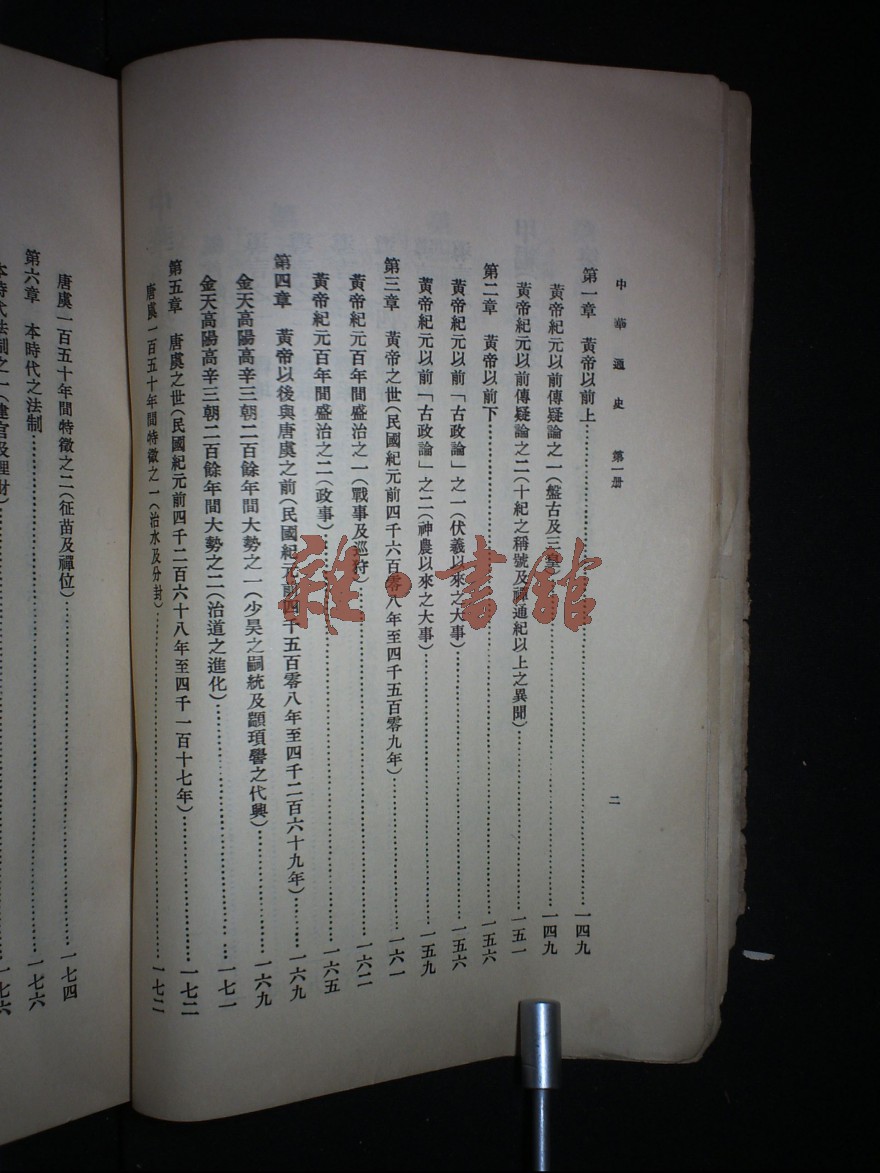 中華通史　第一册　二
第一章　黃帝以前上……一四九
黃帝紀元以前傳疑論之一(盤古及三皇)……一四九
黃帝紀元以前傳疑論之二(十紀之稱號及禪通紀以上之異聞)……一五一
第二章　黃帝以前下……一五六
黃帝紀元以前「古政論」之一(伏羲以來之大事)……一五六
黃帝紀元以前「古政論」之二(神農以來之大事)……一五九
第三章　黃帝之世(民國紀元前四千六百零八年至四千五百零九年)……一六一
黃帝紀元百年間盛治之一(戰事及巡狩)……一六二
黃帝紀元百年間盛治之二(政事)……一六五
第四章　黃帝以後與唐虞之前(民國紀元前四千五百零八年至四千二百六十九年)……一六九
金天高陽高辛三朝二百餘年間大勢之一(少昊之嗣統及顓頊嚳之代興)……一六九
金天高陽高辛三朝二百餘年間大勢之二(治道之進化)……一七一
第五章　唐虞之世(民國紀元前四千二百六十八年至四千一百十七年)……一七二
唐虞一百五十年間特徵之一(治水及分封)……一七二
唐虞一百五十年間特徵之二(征苗及禪位)……一七四
第六章　本時代之法制……一七六
本時代法制之一(建官及理財)……一七六
雜·書館